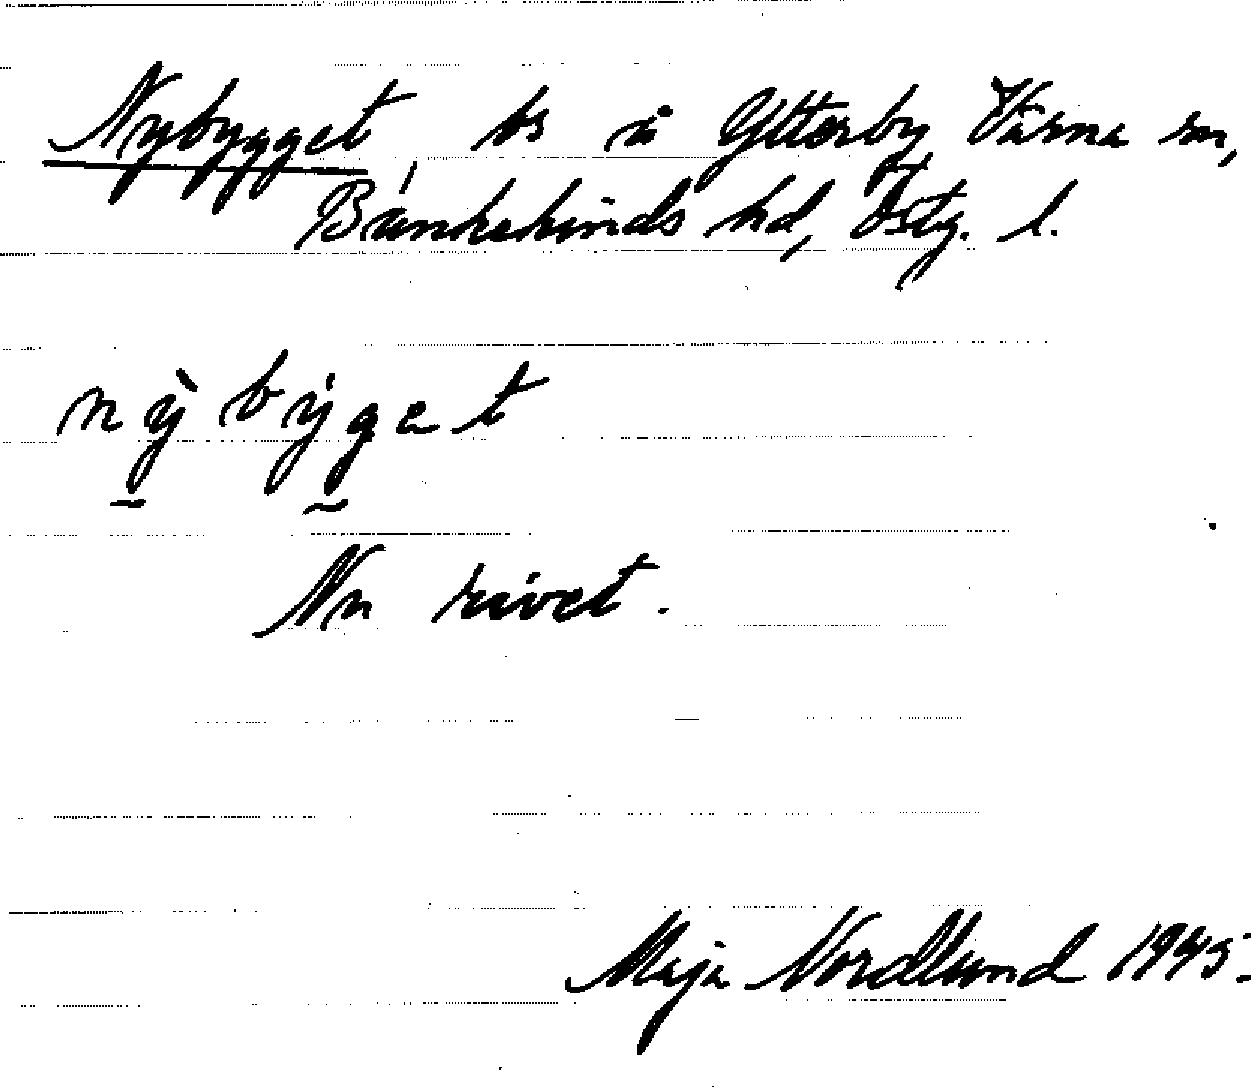 Nybygget, ts å Ytterby Värna sn,
Bankekinds hd, Östg. l.
nỳbýget
Nu rivet.
Maja Nordlund 1945.